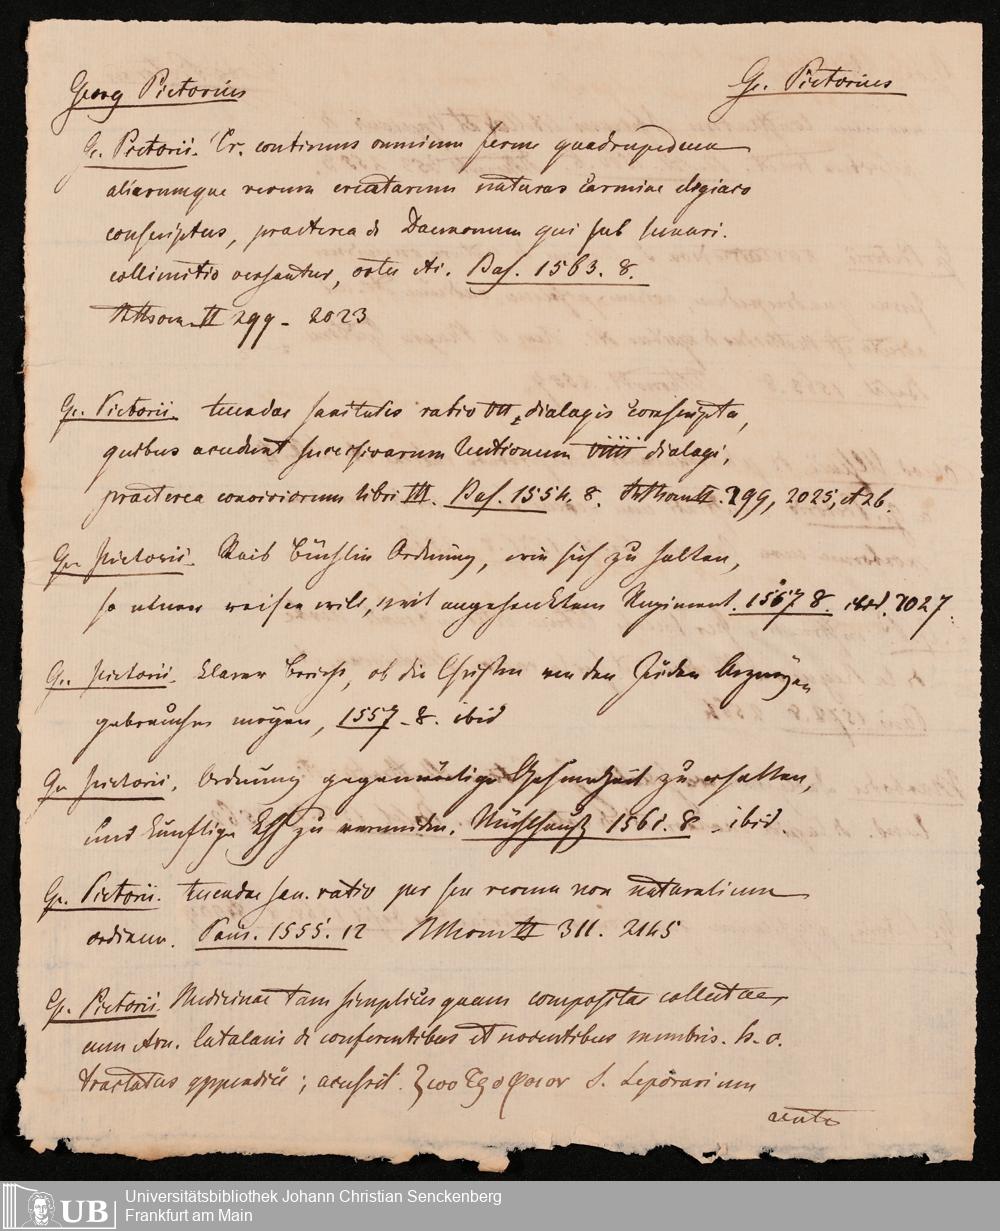 Georg Pictorius
G. Pictorius
G. Pictorii. Pr. continens omnium ferme quadrupedum
aliarumque rerum creatarum naturas Carmine elegiaco
conscriptus, praeterea de Daemonum qui sub lunari.
collimitio versantur, ortu etc. Bas. 1563. 8.
Rthom. II 299 - 2023
G. Pictorii. tuendae sanitatis ratio VII, dialogis conscripta,
quibus accedunt successivarum lectionum VIIII dialogi,
praeterea conviviorum libri III. Bas. 1554, 8. Rthom II. 299, 2025, et 26.
G. Pictorii. Raiß Büchlin Ordnung, wie sich zu halten,
so einer reisen will, mit angehencktem Regiment. 1567 8. ibid. 2027.
G. Pictorii. klarer Bericht, ob die Christen von den Juden Arzneyen
gebrauchen mögen, 1557. 8. ibid
G. Pictorii. Ordnung gegenwärtige Gesundheit zu erhalten,
und künftige zu vermeiden. Mühlhauß 1561. 8. ibid.
G. Pictorii. tuendae san. ratio per sex rerum non naturalium
ordinem. Paris. 1555. 12 Rthom II 311. 2145
G. Pictorii. Medicinae tam simplices quam compositae collectae
cum Arn. Catalani de conferentibus et nocentibus membris. h. c.
tractatus appendice; accessit. ζωοτροφειον s. Leporarium